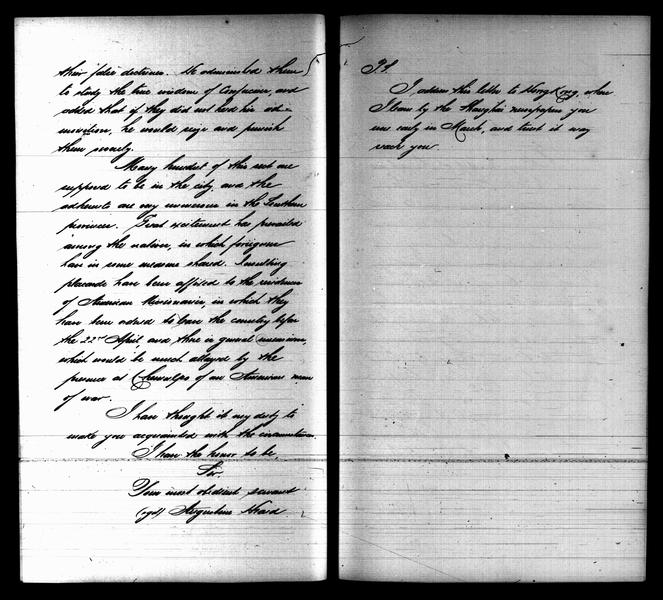 their false doctrines. He admonished them
to study the true wisdom of Confucius, and
added that if they did not heed his ad-
monition, he would seize and punish
them severely.
Many hundred of this sect are
supposed to be in the city, and the
adherents are very numerous in the Southern
provinces. Great excitement has prevailed
among the natives, in which foreigners
have in some measure shared. Insulting
placards have been affixed to the residences
of American Missionaries, in which they
have been ordered to leave the country before
the 22nd April, and there is general uneasiness,
which would be much allayed by the
presence at Chemulpo of an American man
of war.
I have thought it my duty to
make you acquainted with the circumstances.
I have the honor to be,
Sir,
Your most obedient servant
(sgd) Augustine Heard
P.S.
I address this letter to Hong Kong, where
I learn by the Shanghai newspapers you
were early in March, and trust it may
reach you.